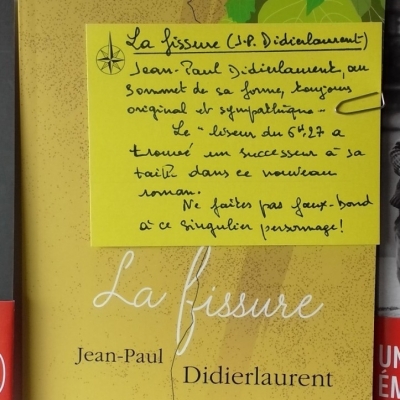 La fissure (J.P. Didierlaurent)
Jean-Paul Didierlaurent, au
sommet de sa forme, toujours
original et sympathique...
Le "liseur du 6h27 a
trouvé un successeur à sa
taille dans ce nouveau
roman.
Ne faites pas faux-bond
à ce singulier personnage!
La fissure
Jean-Paul
Didierlaurent
UN
ÉM